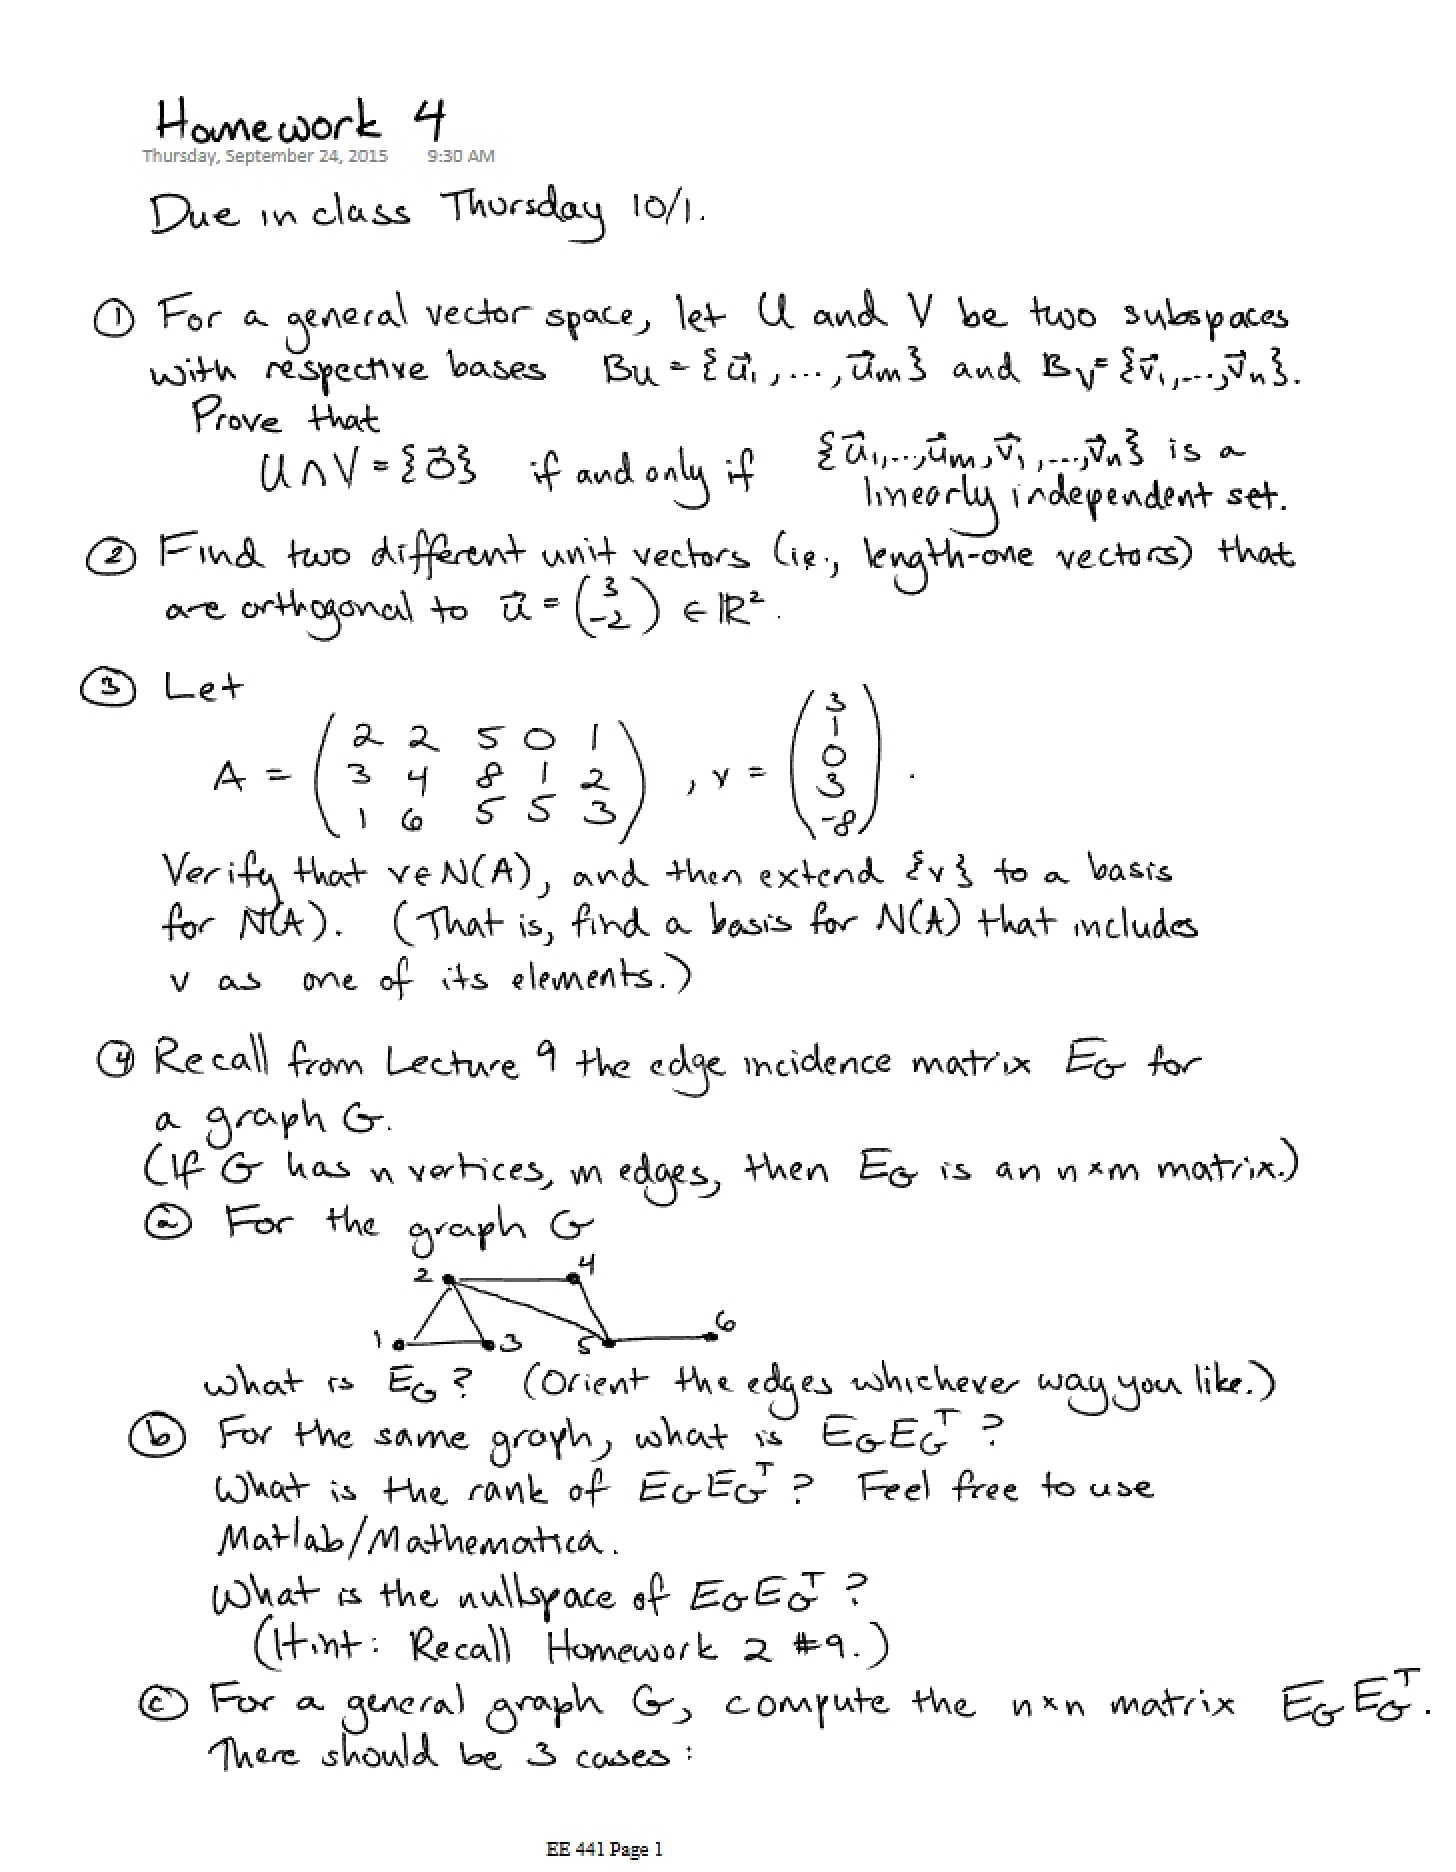 Homework 4
Thursday, September 24, 2015 9:30 AM
Due in class Thursday 10/1.
① For a general vector space, let U and V be two subspaces
with respective bases B_U = {u⃗₁,...,u⃗ₘ} and B_V = {v⃗₁,...,v⃗ₙ}.
Prove that
U∩V = {0⃗} if and only if {u⃗₁,...,u⃗ₘ,v⃗₁,...,v⃗ₙ} is a
linearly independent set.
② Find two different unit vectors (ie., length-one vectors) that
are orthogonal to u⃗ = (3 -2) ∈ ℝ².
③ Let
A = (2 2 5 0 1
3 4 8 1 2
1 6 5 5 3), v = (3 1 0 3 -8).
Verify that v∈N(A), and then extend {v} to a basis
for N(A). (That is, find a basis for N(A) that includes
v as one of its elements.)
④ Recall from Lecture 9 the edge incidence matrix E_G for
a graph G.
(If G has n vertices, m edges, then E_G is an n×m matrix.)
ⓐ For the graph G
2 4
1 3 5 6
What is E_G? (Orient the edges whichever way you like.)
ⓑ For the same graph, what is E_G E_G^T ?
What is the rank of E_G E_G^T ? Feel free to use
Matlab/Mathematica.
What is the nullspace of E_G E_G^T ?
(Hint: Recall Homework 2 #9.)
ⓒ For a general graph G, compute the n×n matrix E_G E_G^T.
There should be 3 cases:
EE 441 Page 1